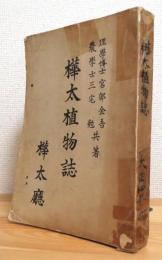 理學博士 宮部金吾
農學士 三宅勉 共著
樺太植物誌
樺太廳
樺太植物誌